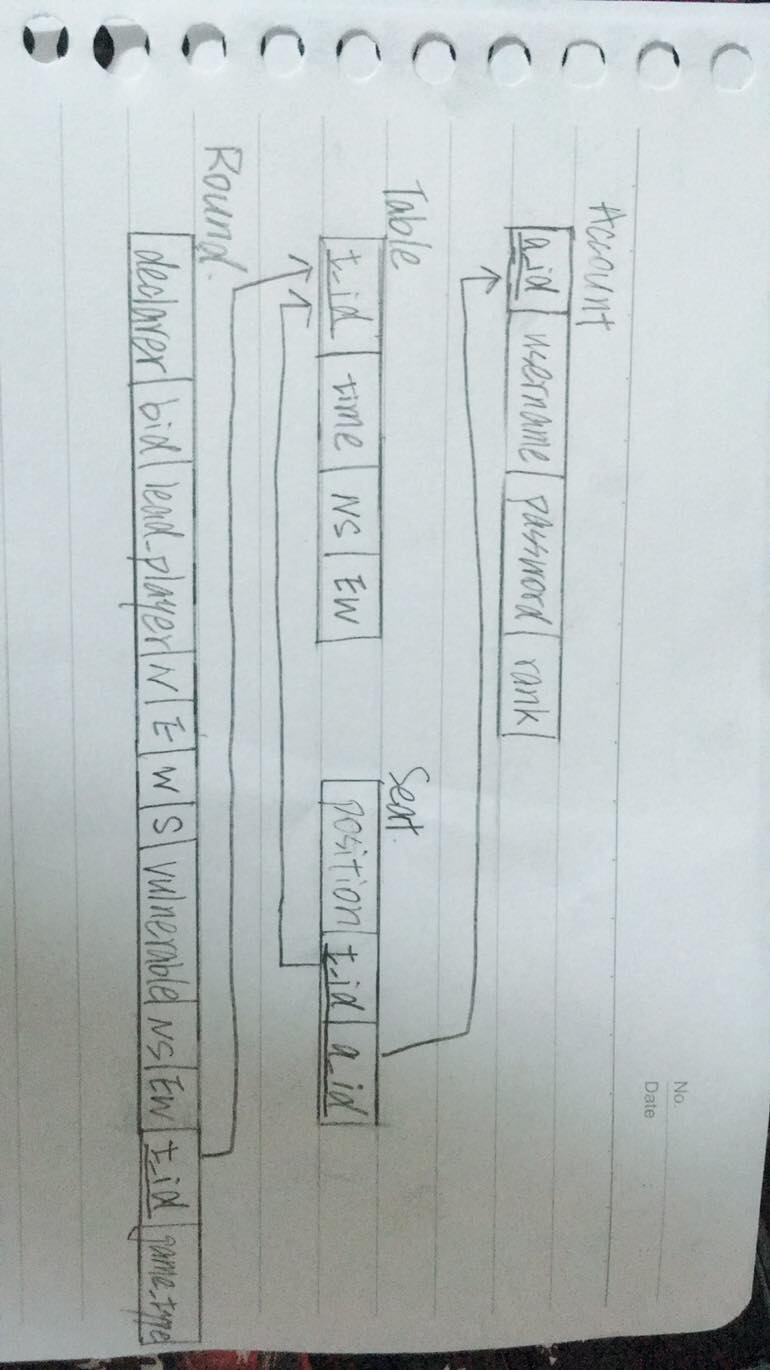 No.
Date
Account
a_id username password rank
Table
Seat.
t_id time NS EW
position t_id a_id
Round.
declarer bid lead_player N E W S vulnerable NS EW t_id game_type